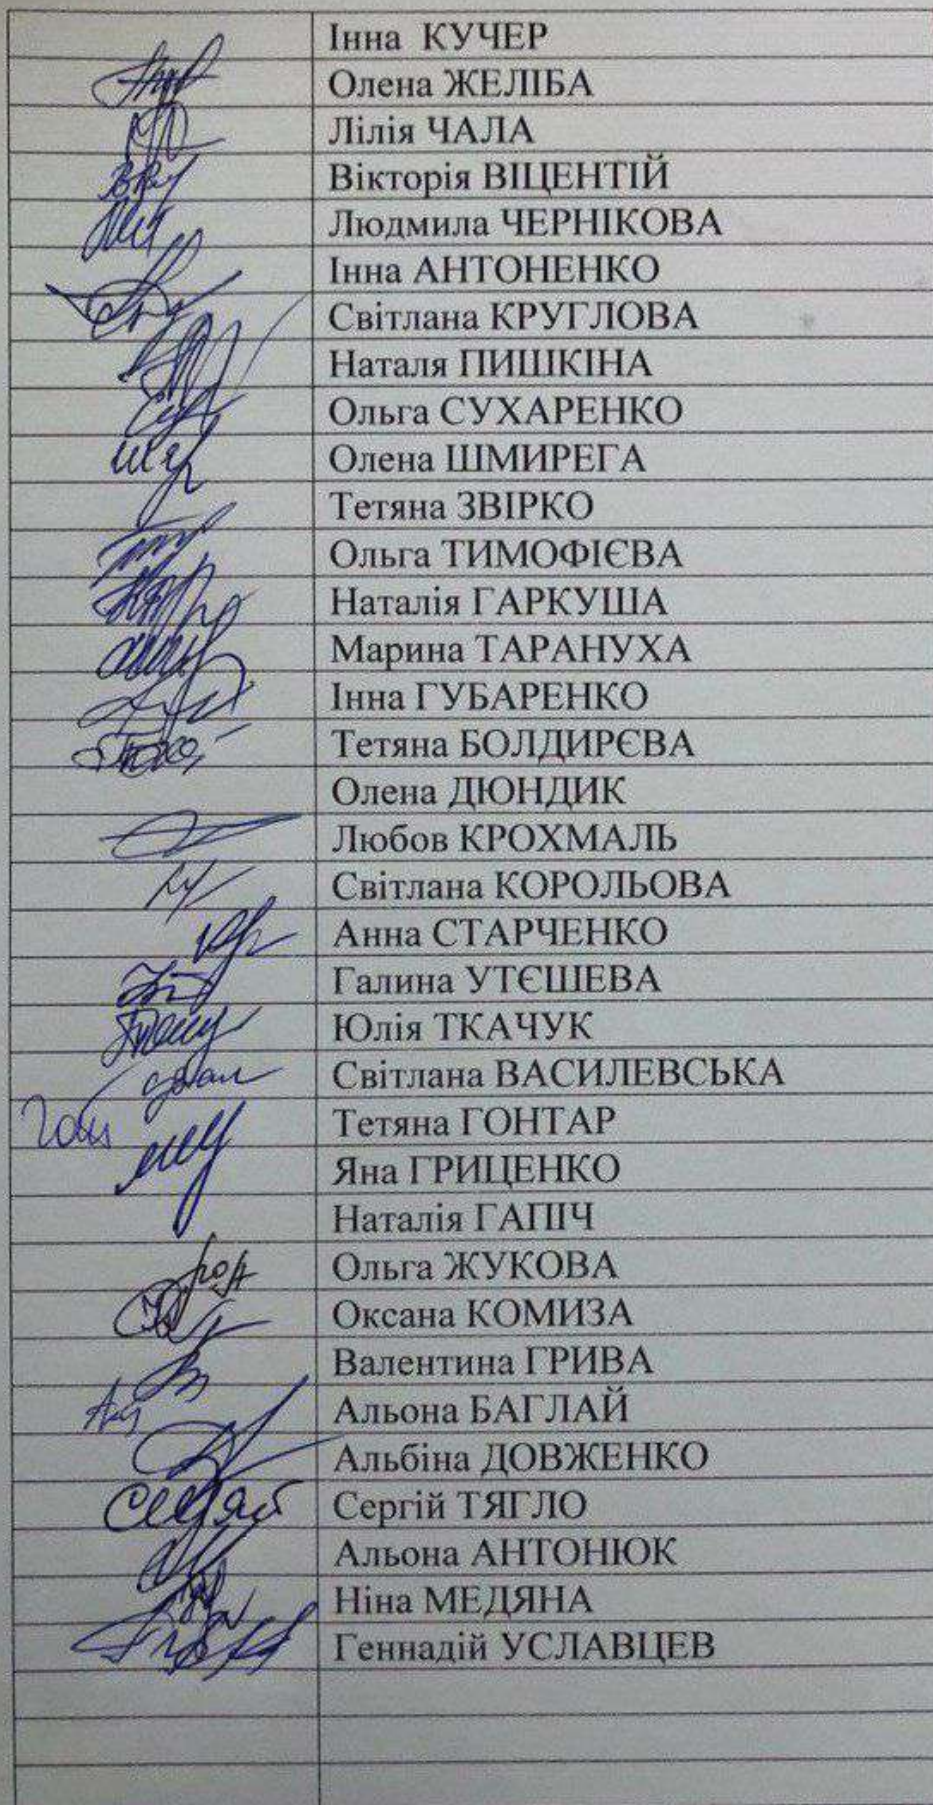 Інна КУЧЕР
Олена ЖЕЛІБА
Лілія ЧАЛА
Вікторія ВІЦЕНТІЙ
Людмила ЧЕРНІКОВА
Інна АНТОНЕНКО
Світлана КРУГЛОВА
Наталя ПИШКІНА
Ольга СУХАРЕНКО
Олена ШМИРЕГА
Тетяна ЗВІРКО
Ольга ТИМОФІЄВА
Наталія ГАРКУША
Марина ТАРАНУХА
Інна ГУБАРЕНКО
Тетяна БОЛДИРЄВА
Олена ДЮНДИК
Любов КРОХМАЛЬ
Світлана КОРОЛЬОВА
Анна СТАРЧЕНКО
Галина УТЄШЕВА
Юлія ТКАЧУК
Світлана ВАСИЛЕВСЬКА
Тетяна ГОНТАР
Яна ГРИЦЕНКО
Наталія ГАПІЧ
Ольга ЖУКОВА
Оксана КОМИЗА
Валентина ГРИВА
Альона БАГЛАЙ
Альбіна ДОВЖЕНКО
Сергій ТЯГЛО
Альона АНТОНЮК
Ніна МЕДЯНА
Геннадій УСЛАВЦЕВ